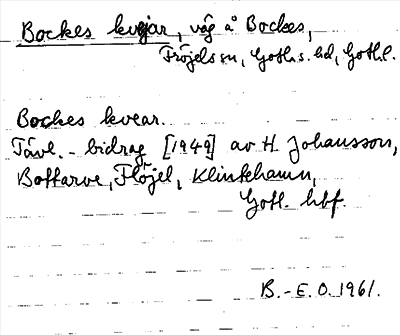 Bockes kvejar, väg å Bockes,
Fröjels sn, Goth. s. hd, Gotl. l.
Bockes kvear.
Tävl. - bidrag [1949] av H. Johansson,
Bottarve, Flöjel, Klintehamn,
Gotl. hbf.
B. - E. O. 1961.